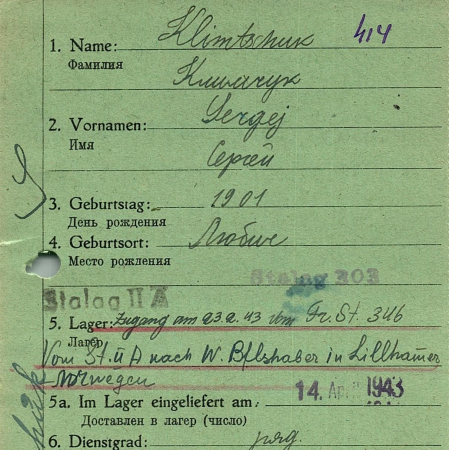 Klimtschuk 414
1. Name:
Фамилия
Климчук
Sergej
2. Vornamen:
Имя
Сергей
3. Geburtstag: 1901
День рождения
4. Geburtsort: Любич
Место рождения
Stalag 303
Stalag II A
5. Lager: Zugang am 23.2.43 vom Fr. St. 346
Лагерь
Vom St. II A nach W. Bflshaber in Lillhamer
Norwegen
14. Apr. 1943
5a. Im Lager eingeliefert am:
Доставлен в лагерь (число)
6. Dienstgrad: ряд.